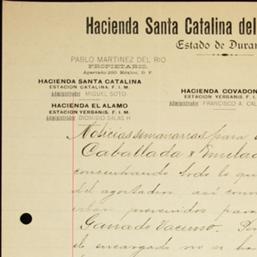 Hacienda Santa Catalina del
Estado de Duran
PABLO MARTINEZ DEL RIO
PROPIETARIO.
Apartado 250 México, D. F.
HACIENDA SANTA CATALINA
ESTACION CATALINA, F. I. M.
Administrador MIGUEL SOTO
HACIENDA COVADON
ESTACION YERBANIS, F. I. M.
Administrador FRANCISCO A. CAL
HACIENDA EL ALAMO
ESTACION YERBANIS, F. I. M.
Administrador DIONISIO SALAS H
Noticias semanarias para
Caballada y Mulada
concentrando todo lo que
del agostadero, así como
están prevenidos para
Ganado Vacuno. Por
de encargado no se ha